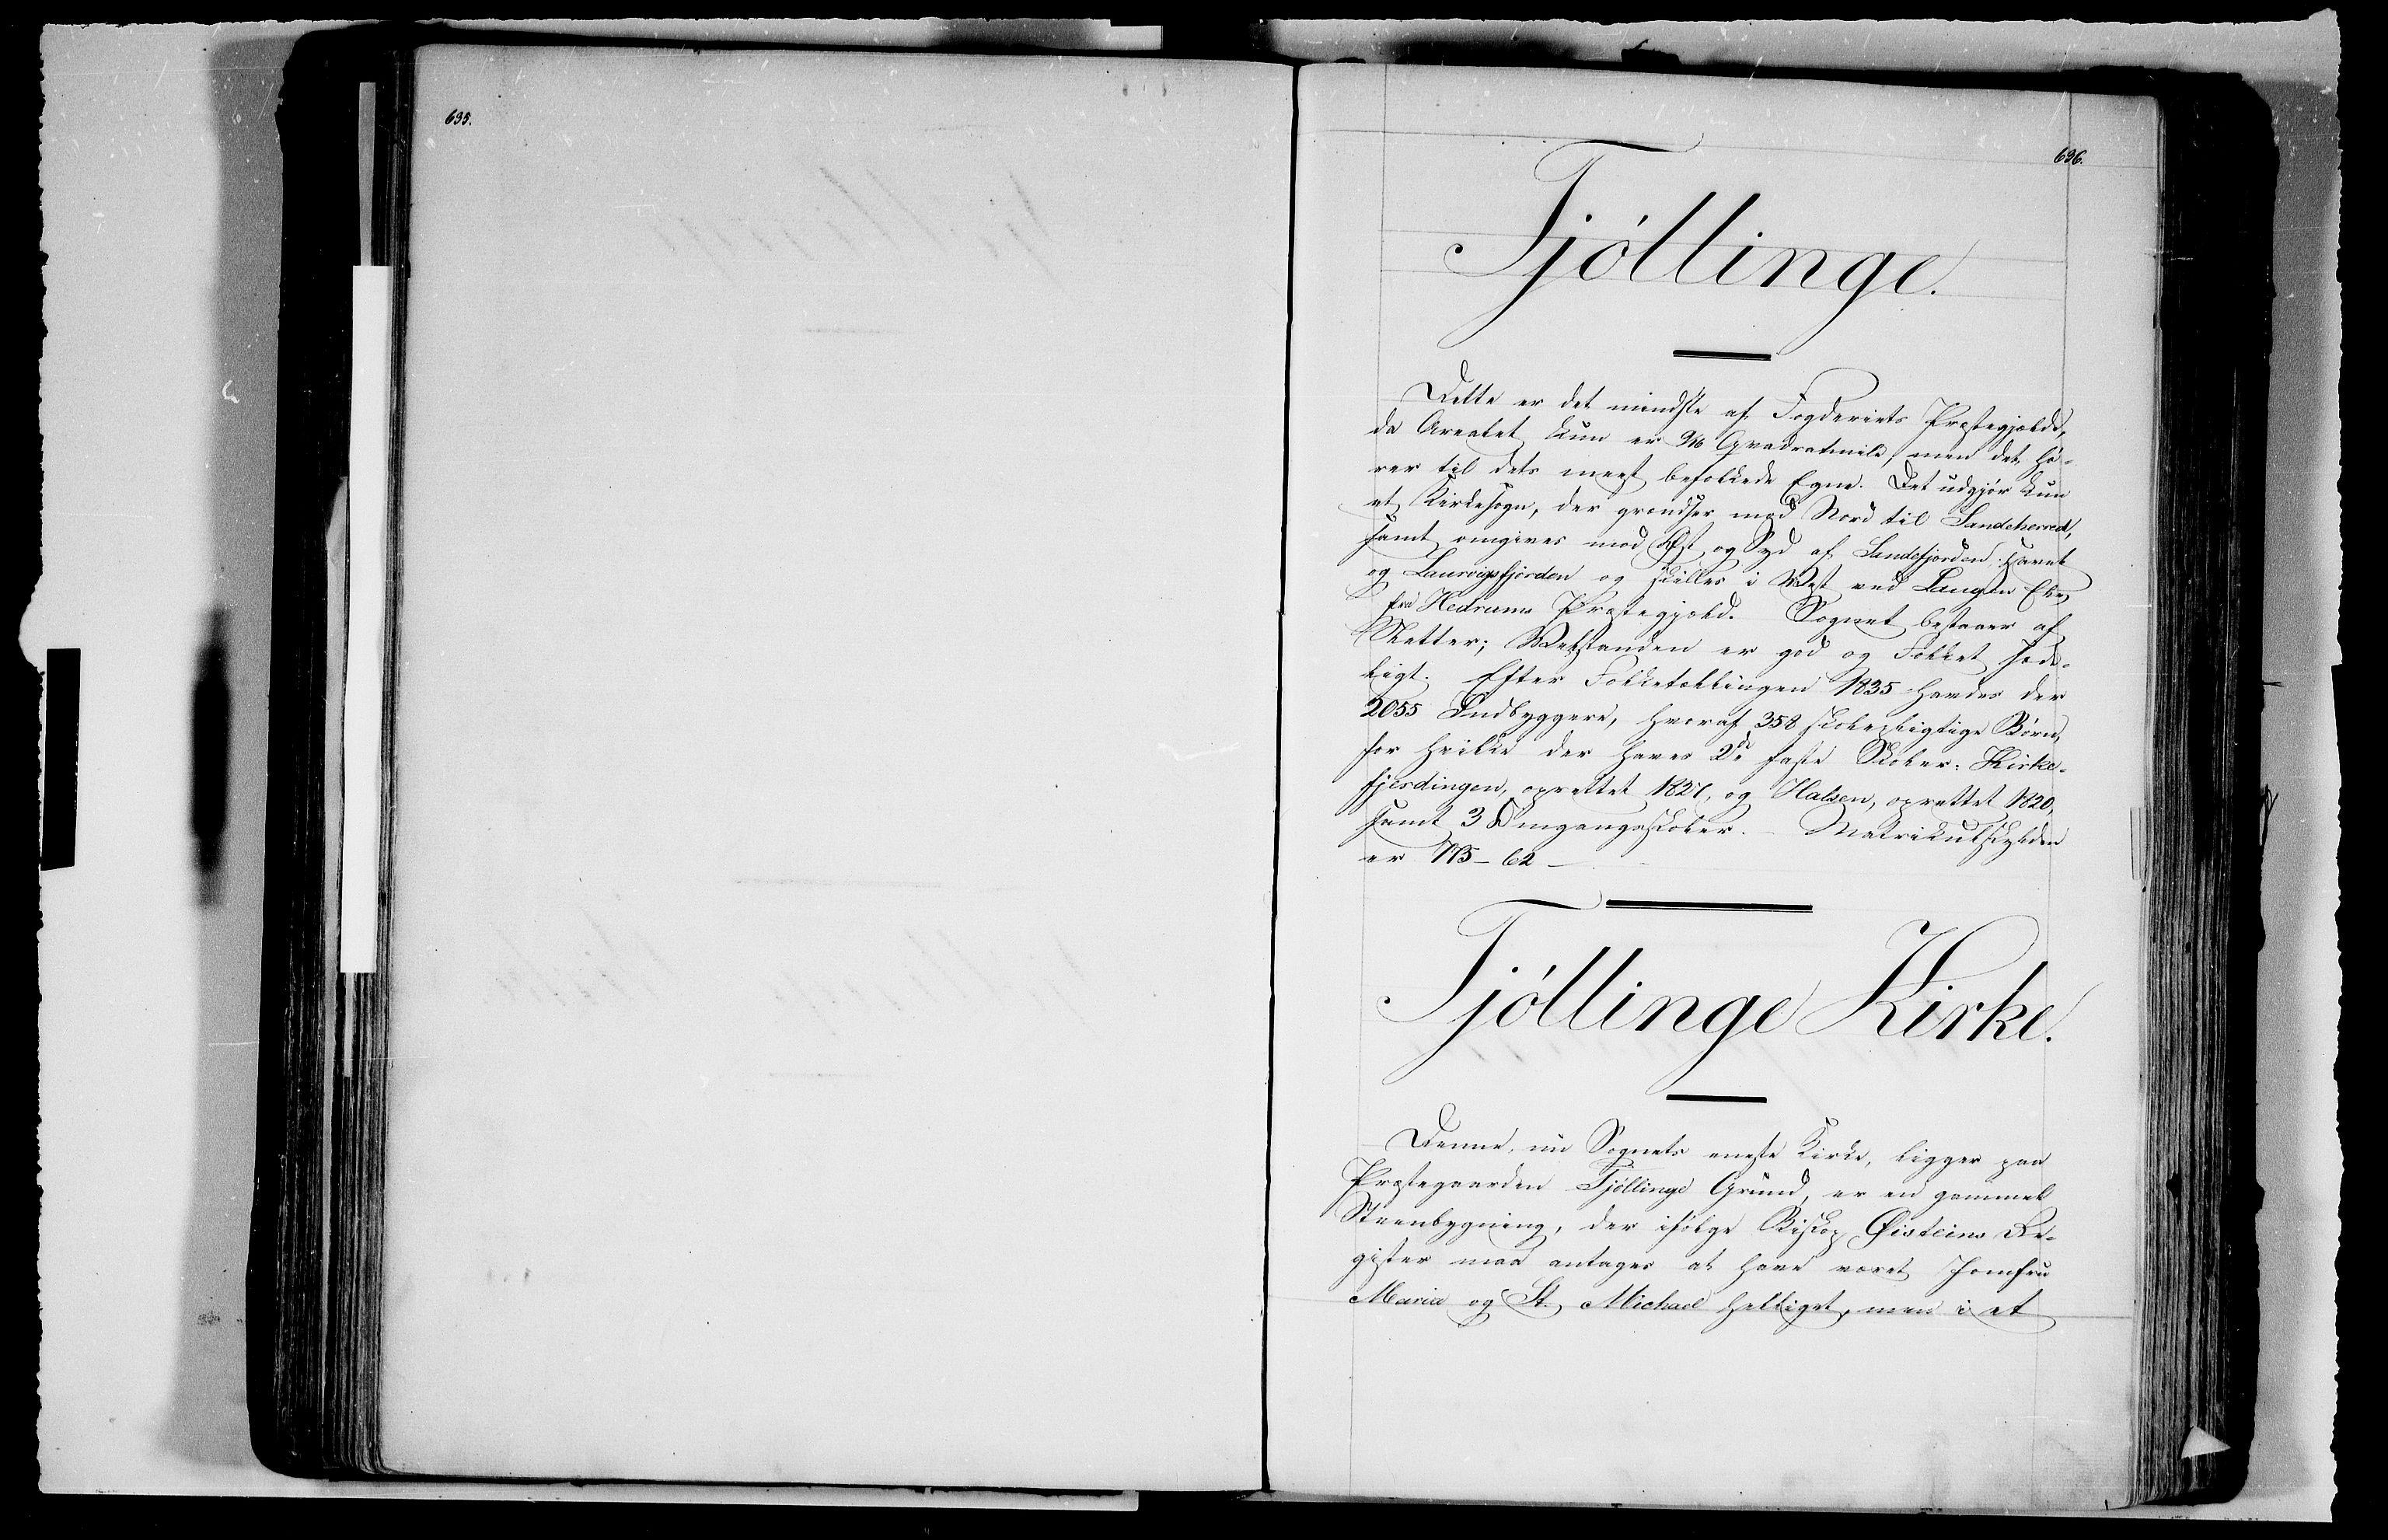 635.
636.
Tjöllinge.
Dette er det mindste af Fogderiets Præstegjælde,
da Arealet kun er Qvadratmile, men det hö-
rer til dets meest befolkede Egne. Det udgjör kun
et Kirkesogn, der grændser mod Nord til Sandeherred,
samt omgives mod Øst og Syd af Sandefjorden, Havet
og Laurvigsfjorden og skilles i Vest ved Laugen Elv
fra Hedrums Præstegjæld. Sognet bestaaer af
Sletter; Velstanden er god og Folket sæde-
ligt. Efter Folketællingen 1835 havdes der
2055 Indbyggere, hvoraf 358 skolepligtige Börn,
for hvilke der haves 2de faste Skoler: Kirke-
fjerdingen, oprettet 1827, og Halsen, oprettet 1820,
samt 3 Omgangsskoler. – Matrikulskylden
er 775 – 62 –
Tjöllinge Kirke.
Denne, nu Sognets eneste Kirke, ligger paa
Præstegaarden Tjöllinge Grund, er en gammel
Steenbygning, der ifölge Biskop Øisteins Re-
gister maa antages at have været Jomfru
Maria og St. Michael helliget, men i et